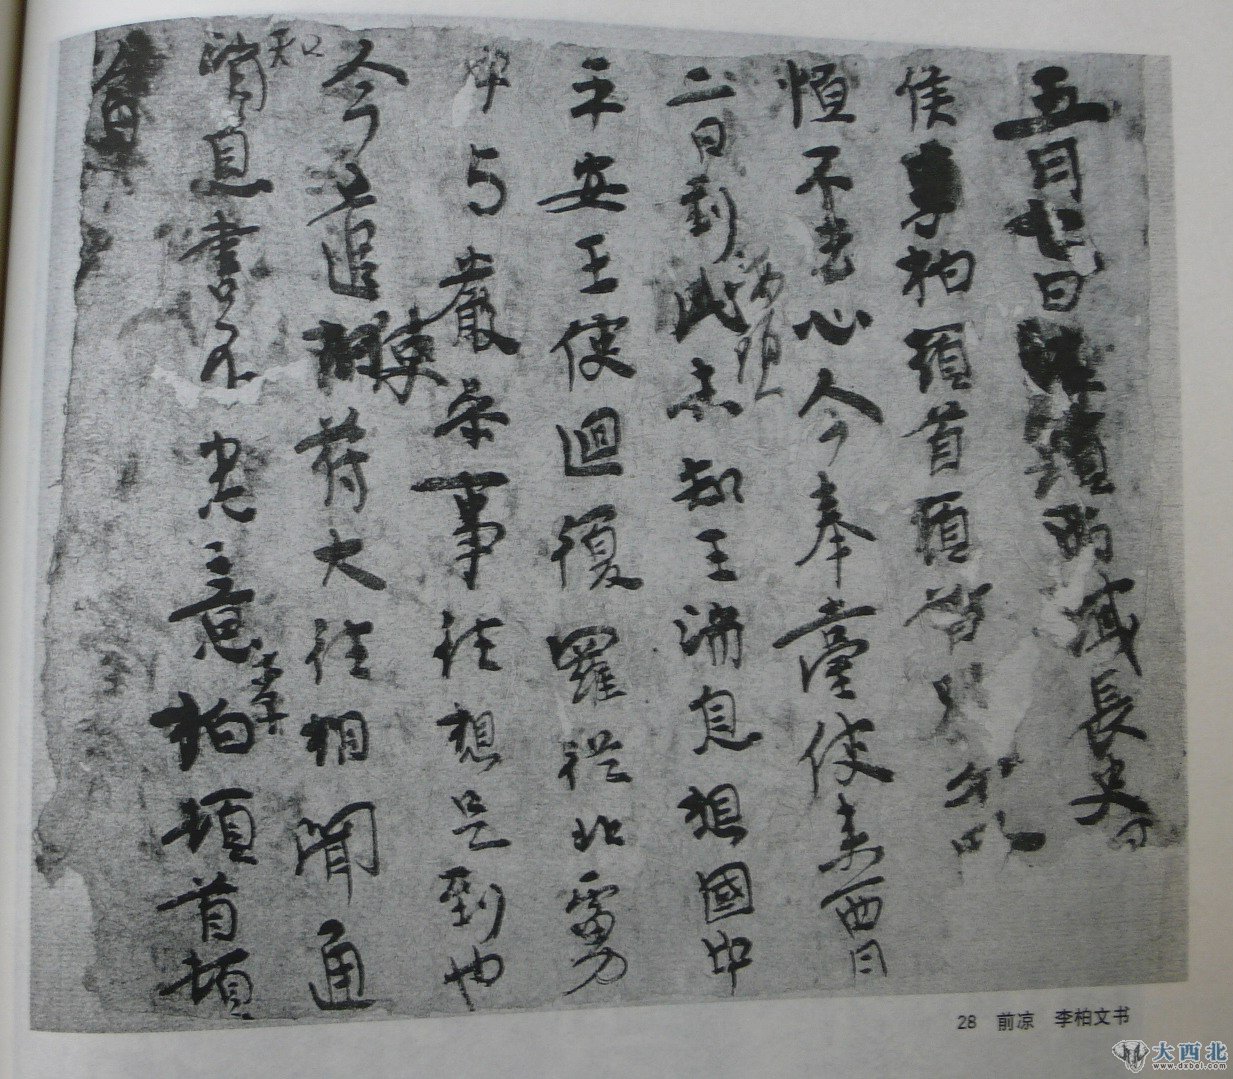 五月七日西域長史
侯李柏頓首頓首
恒不去心今奉臺使來西月
二日到此海頭未知王消息想國中
平安王使迴復羅從北虜
中与嚴參事往想是到也
今遣使苻大往相聞通
知消息書不盡意李柏頓首頓
首
28 前凉 李柏文书
大西北
www.dxbei.com